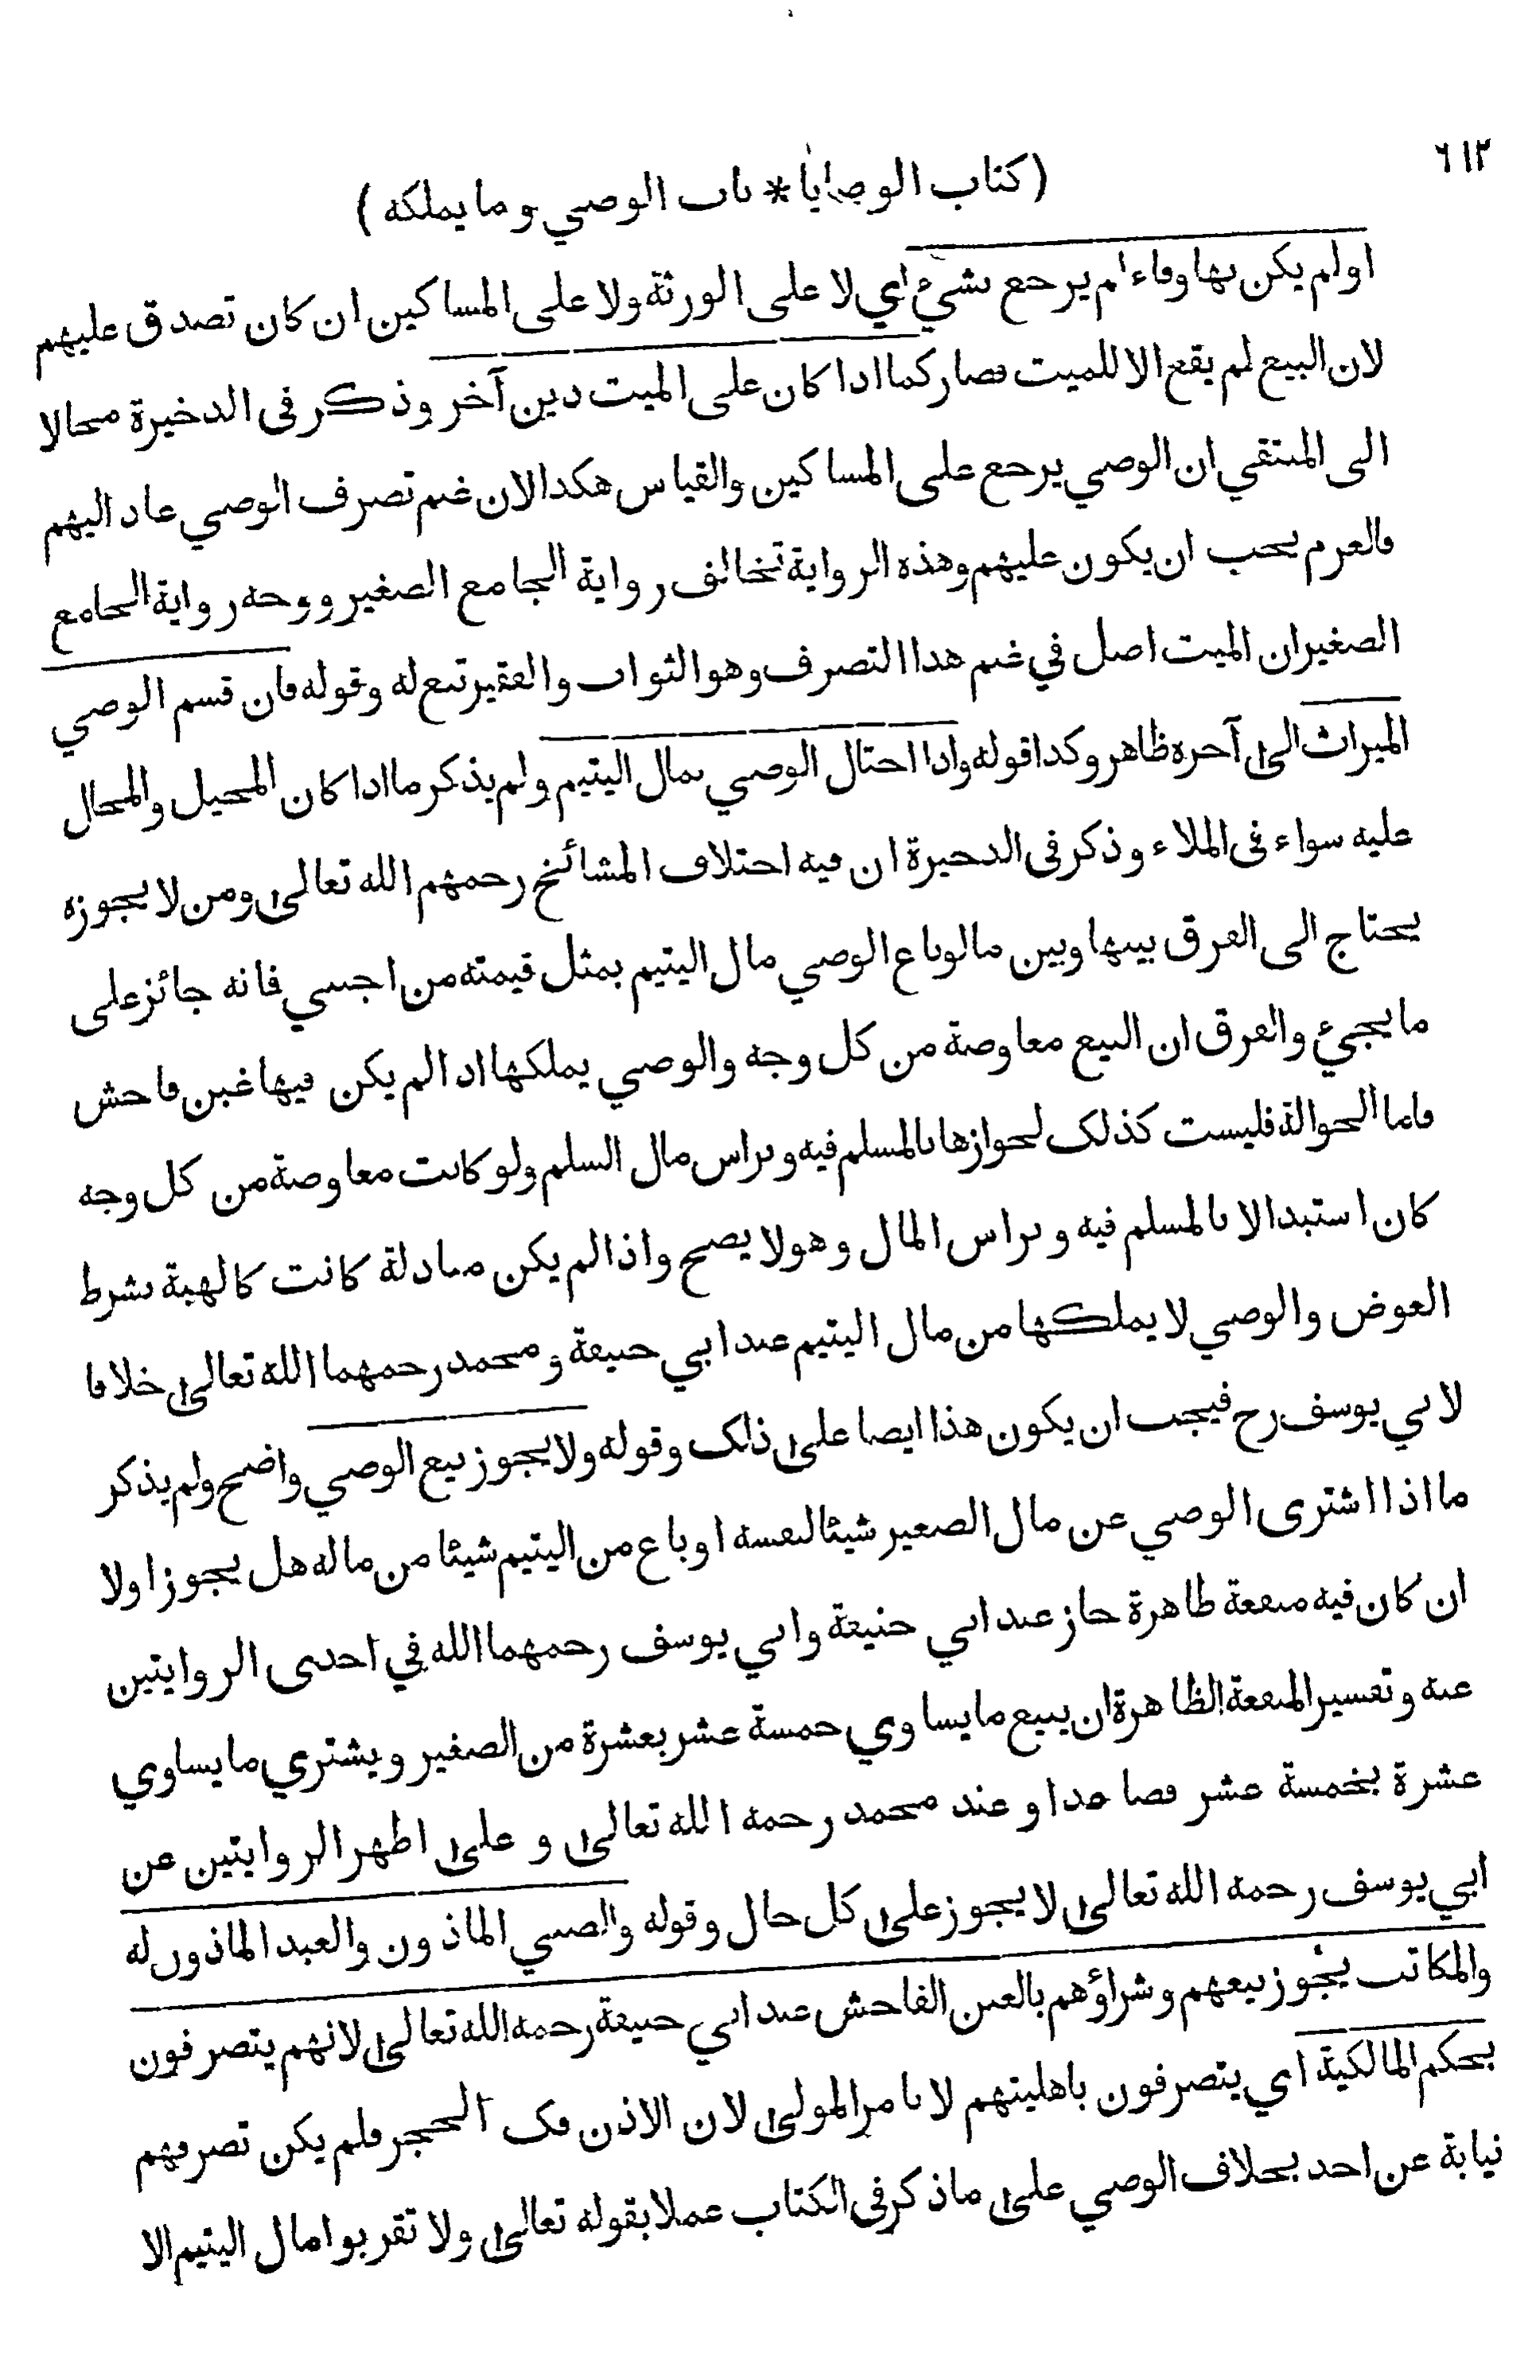 ٦١٢
( كتاب الوصايا * باب الوصي وما يملكه )
او لم يكن بها وفاء لم يرجع بشيء اي لا على الورثة ولا على المساكين ان كان تصدق عليهم
لان البيع لم يقع الا للميت فصار كما اذا كان على الميت دين آخر وذكر فى الذخيرة محالا
الى المنتقي ان الوصي يرجع على المساكين والقياس هكذا لان غنم تصرف الوصي عاد اليهم
فالغرم يجب ان يكون عليهم وهذه الرواية تخالف رواية الجامع الصغير ووجه رواية الجامع
الصغير ان الميت اصل في غنم هذا التصرف وهو الثواب والفقير تبع له وقوله فان قسم الوصي
الميراث الى آخره ظاهر وكذا قوله واذا احتال الوصي بمال اليتيم ولم يذكر ما اذا كان المحيل والمحال
عليه سواء فى الملاء وذكر فى الذخيرة ان فيه اختلاف المشائخ رحمهم الله تعالى ومن لا يجوزه
يحتاج الى الفرق بينها وبين ما لو باع الوصي مال اليتيم بمثل قيمته من اجنبي فانه جائز على
ما يجيء والفرق ان البيع معاوضة من كل وجه والوصي يملكها اذا لم يكن فيها غبن فاحش
فاما الحوالة فليست كذلك لجوازها بالمسلم فيه وبراس مال السلم ولو كانت معاوضة من كل وجه
كان استبدالا بالمسلم فيه وبراس المال وهو لا يصح واذا لم يكن مبادلة كانت كالهبة بشرط
العوض والوصي لا يملكها من مال اليتيم عند ابي حنيفة ومحمد رحمهما الله تعالى خلافا
لابي يوسف رح فيجب ان يكون هذا ايضا على ذلك وقوله ولا يجوز بيع الوصي واضح ولم يذكر
ما اذا اشترى الوصي عن مال الصغير شيئا لنفسه او باع من اليتيم شيئا من ماله هل يجوز او لا
ان كان فيه منفعة ظاهرة جاز عند ابي حنيفة وابي يوسف رحمهما الله في احدى الروايتين
عنه وتفسير المنفعة الظاهرة ان يبيع ما يساوي خمسة عشر بعشرة من الصغير ويشتري ما يساوي
عشرة بخمسة عشر فصاعدا وعند محمد رحمه الله تعالى وعلى اظهر الروايتين عن
ابي يوسف رحمه الله تعالى لا يجوز على كل حال وقوله والصبي الماذون والعبد الماذون له
والمكاتب يجوز بيعهم وشراؤهم بالغبن الفاحش عند ابي حنيفة رحمه الله تعالى لانهم يتصرفون
بحكم المالكية اي يتصرفون باهليتهم لا بامر المولى لان الاذن فك الحجر فلم يكن تصرفهم
نيابة عن احد بخلاف الوصي على ما ذكر فى الكتاب عملا بقوله تعالى ولا تقربوا مال اليتيم الا